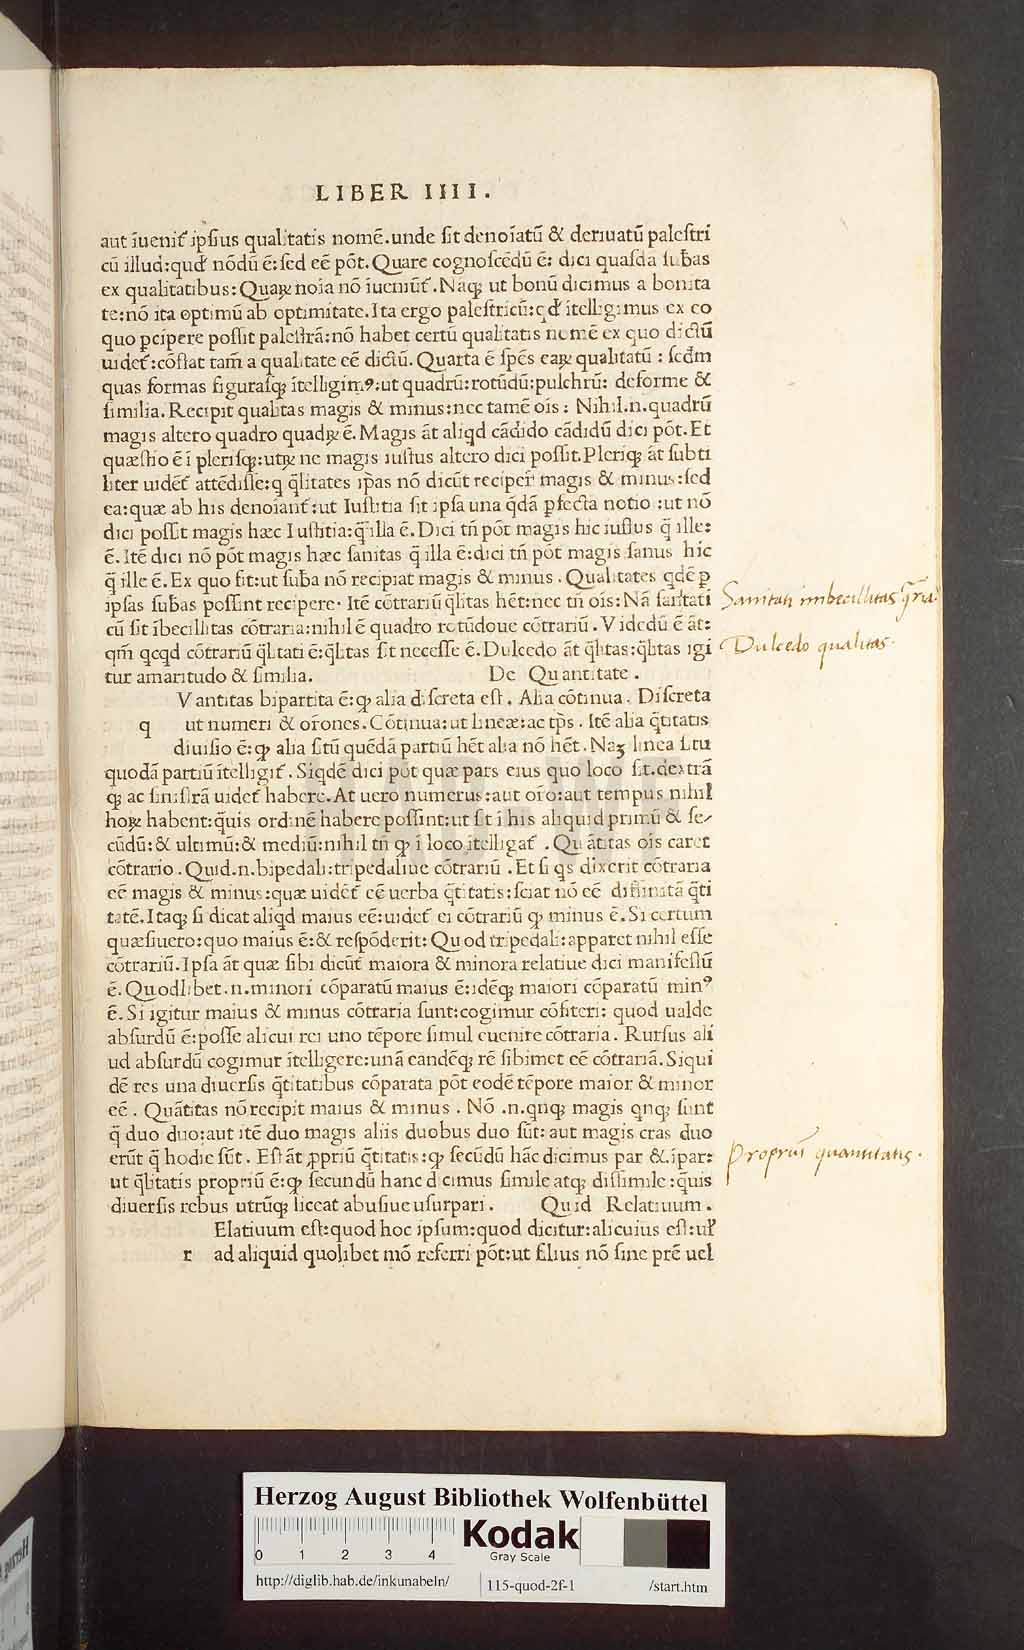 LIBER IIII.
aut ĩuenit᷑ ipsius qualitatis nomẽ.unde sit denoĩatũ & deriuatũ palestri
cũ illud:quod nõdũ ẽ:sed eẽ põt.Quare cognoscẽdũ ẽ: dici quasdã subas
ex qualitatibus:Quaꝝ noĩa nõ ĩueniũt᷑.Naqꝫ ut bonũ dicimus a bonita
te:nõ ita optimũ ab optimitate.Ita ergo palestricũ:qd̓ ĩtelligimus ex eo
quo ꝑcipere possit palestrã:nõ habet certũ qualitatis nomẽ ex quo dictũ
uidet᷑:cõstat tam̃ a qualitate eẽ dictũ.Quarta ẽ spẽs eaꝝ qualitatũ : secd̃m
quas formas figurasqꝫ ĩtelligimꝰ:ut quadrũ:rotũdũ:pulchrũ: deforme &
similia.Recipit qualitas magis & minus:nec tamẽ oĩs: Nihil.n.quadrũ
magis altero quadro quadꝝ ẽ.Magis ãt aliqd cãdido cãdidũ dici põt.Et
quæstio ẽ ĩ plerisqꝫ:utꝝ ne magis iustus altero dici possit.Pleriqꝫ ãt subti
liter uident᷑ attẽdisse:q q̃litates ip̃as nõ dicũt reciper̃ magis & minus:sed
ea:quæ ab his denoĩant᷑:ut Iustitia sit ipsa una q̃dã ꝑfecta notio :ut nõ
dici possit magis hæc Iustitia:q̃ illa ẽ.Dici tñ põt magis hic iustus q̃ ille:
ẽ.Itẽ dici nõ põt magis hæc sanitas q̃ illa ẽ:dici tñ põt magis sanus hic
q̃ ille ẽ.Ex quo fit:ut suba nõ recipiat magis & minus . Qualitates qdẽ ꝑ
ipsas subas possint recipere. Itẽ cõtrariũ q̃litas hẽt:nec tñ oĩs: Nã sanitati
cũ sit ĩbecillitas cõtraria:nihil ẽ quadro rotũdoue cõtrariũ.Videdũ ẽ ãt:
qm̃ qcqd cõtrariũ q̃litati ẽ:q̃litas sit necesse ẽ.Dulcedo ãt q̃litas:q̃litas igi
tur amaritudo & similia. De Quantitate .
Vantitas bipartita ẽ:qꝫ alia discreta est. Alia cõtinua. Discreta
q ut numeri & or̃ones.Cõtinua:ut lineæ:ac tp̃s . Itẽ alia q̃titatis
diuisio ẽ:qꝫ alia sitũ quẽdã partiũ hẽt alia nõ hẽt.Naꝫ linea situ
quodã partiũ ĩtelligit᷑.Siqdẽ dici põt quæ pars eius quo loco sit.dextrã
qꝫ ac sinistrã uidet᷑ habere.At uero numerus:aut or̃o:aut tempus nihil
hoꝝ habent:q̃uis ordinẽ habere possint:ut sit ĩ his aliquid primũ & se⸗
cũdũ:& ultimũ:& mediũ:nihil tñ qꝫ ĩ loco ĩtelligat᷑ .Quãtitas oĩs caret
cõtrario .Quid.n.bipedali:tripedaliue cõtrariũ .Et si qs dixerit cõtraria
eẽ magis & minus:quæ uident᷑ eẽ uerba q̃titatis:sciat nõ eẽ diffinitã q̃ti
tatẽ.Itaqꝫ si dicat aliqd maius eẽ:uidet᷑ ei cõtrariũ qꝫ minus ẽ.Si certum
quæsiuero:quo maius ẽ:& respõderit:Quod tripedali:apparet nihil esse
cõtrariũ.Ipsa ãt quæ sibi dicũt᷑ maiora & minora relatiue dici manifestũ
ẽ.Quodlibet.n.minori cõparatũ maius ẽ:idẽqꝫ maiori cõparatũ minꝰ
ẽ.Si igitur maius & minus cõtraria sunt:cogimur cõfiteri: quod ualde
absurdũ ẽ:posse alicui rei uno tẽpore simul euenire cõtraria. Rursus ali
ud absurdũ cogimur ĩtelligere:unã eandẽqꝫ rẽ sibimet eẽ cõtrariã.Siqui
dẽ res una diuersis q̃titatibus cõparata põt eodẽ tẽpore maior & minor
eẽ . Quãtitas nõ recipit maius & minus . Nõ .n.qnqꝫ magis qnqꝫ sunt
q̃ duo duo:aut itẽ duo magis aliis duobus duo sũt: aut magis cras duo
erũt q̃ hodie sũt. Est ãt ꝓpriũ q̃titatis:qꝫ secũdũ hãc dicimus par & ĩpar:
ut q̃litatis propriũ ẽ:qꝫ secundũ hanc dicimus simile atqꝫ dissimile:q̃uis
diuersis rebus utrũqꝫ liceat abusiue usurpari . Quid Relatiuum .
Elatiuum est:quod hoc ipsum:quod dicitur:alicuius est:ul̃
r ad aliquid quolibet mõ referri põt:ut filius nõ sine prẽ uel
Sanitati imbecillitas 9̃ria.
Dulcedo qualitas.
Propriũ quantitatis.
HAB-WF
Herzog August Bibliothek Wolfenbüttel
0 1 2 3 4
Kodak
Gray Scale
http://diglib.hab.de/inkunabeln/ 115-quod-2f-1 /start.htm